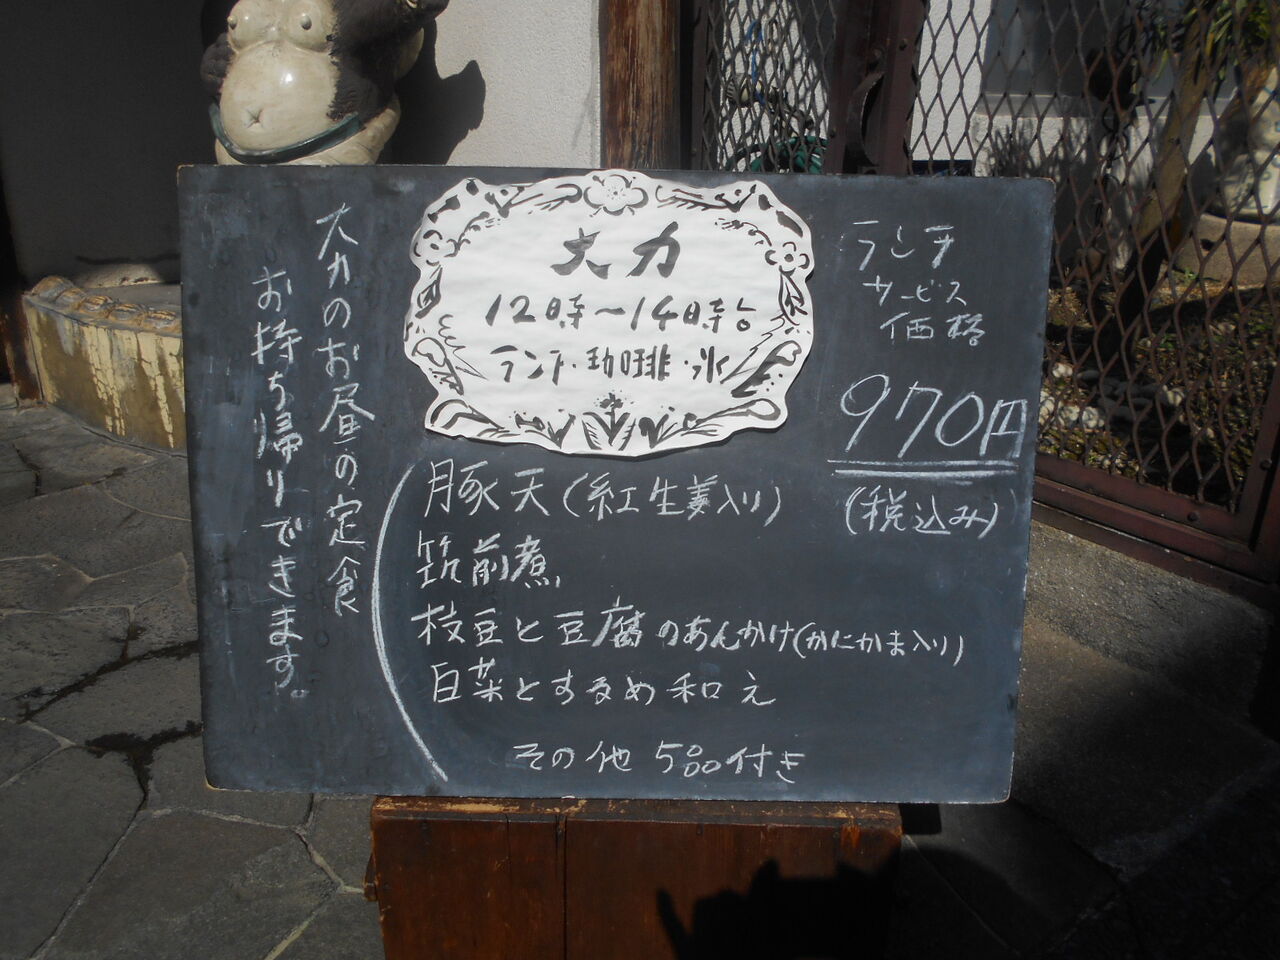 大力
12時〜14時迄
ランチ・珈琲・氷
ランチ
サービス
価格
970円
(税込み)
大力のお昼の定食
お持ち帰りできます。
豚天(紅生姜入り)
筑前煮
枝豆と豆腐のあんかけ(かにかま入り)
白菜とするめ和え
その他5品付き